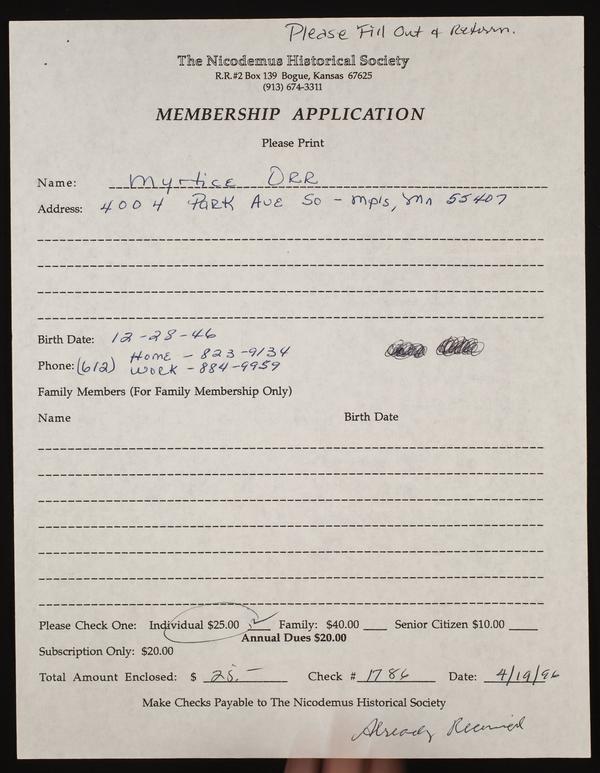 Please Fill Out & Return.
The Nicodemus Historical Society
R.R.#2 Box 139 Bogue, Kansas 67625
(913) 674-3311
MEMBERSHIP APPLICATION
Please Print
Name: Myrtice ORR
Address: 4004 PARK AVE So - Mpls, Mn 55407
Birth Date: 12-28-46
Phone: (612) Home - 823-9134
Work - 884-9959
Family Members (For Family Membership Only)
Name Birth Date
Please Check One: Individual $25.00 ✓ Family: $40.00 ___ Senior Citizen $10.00 ___
Annual Dues $20.00
Subscription Only: $20.00
Total Amount Enclosed: $ 25.— Check # 1786 Date: 4/19/96
Make Checks Payable to The Nicodemus Historical Society
Already Received